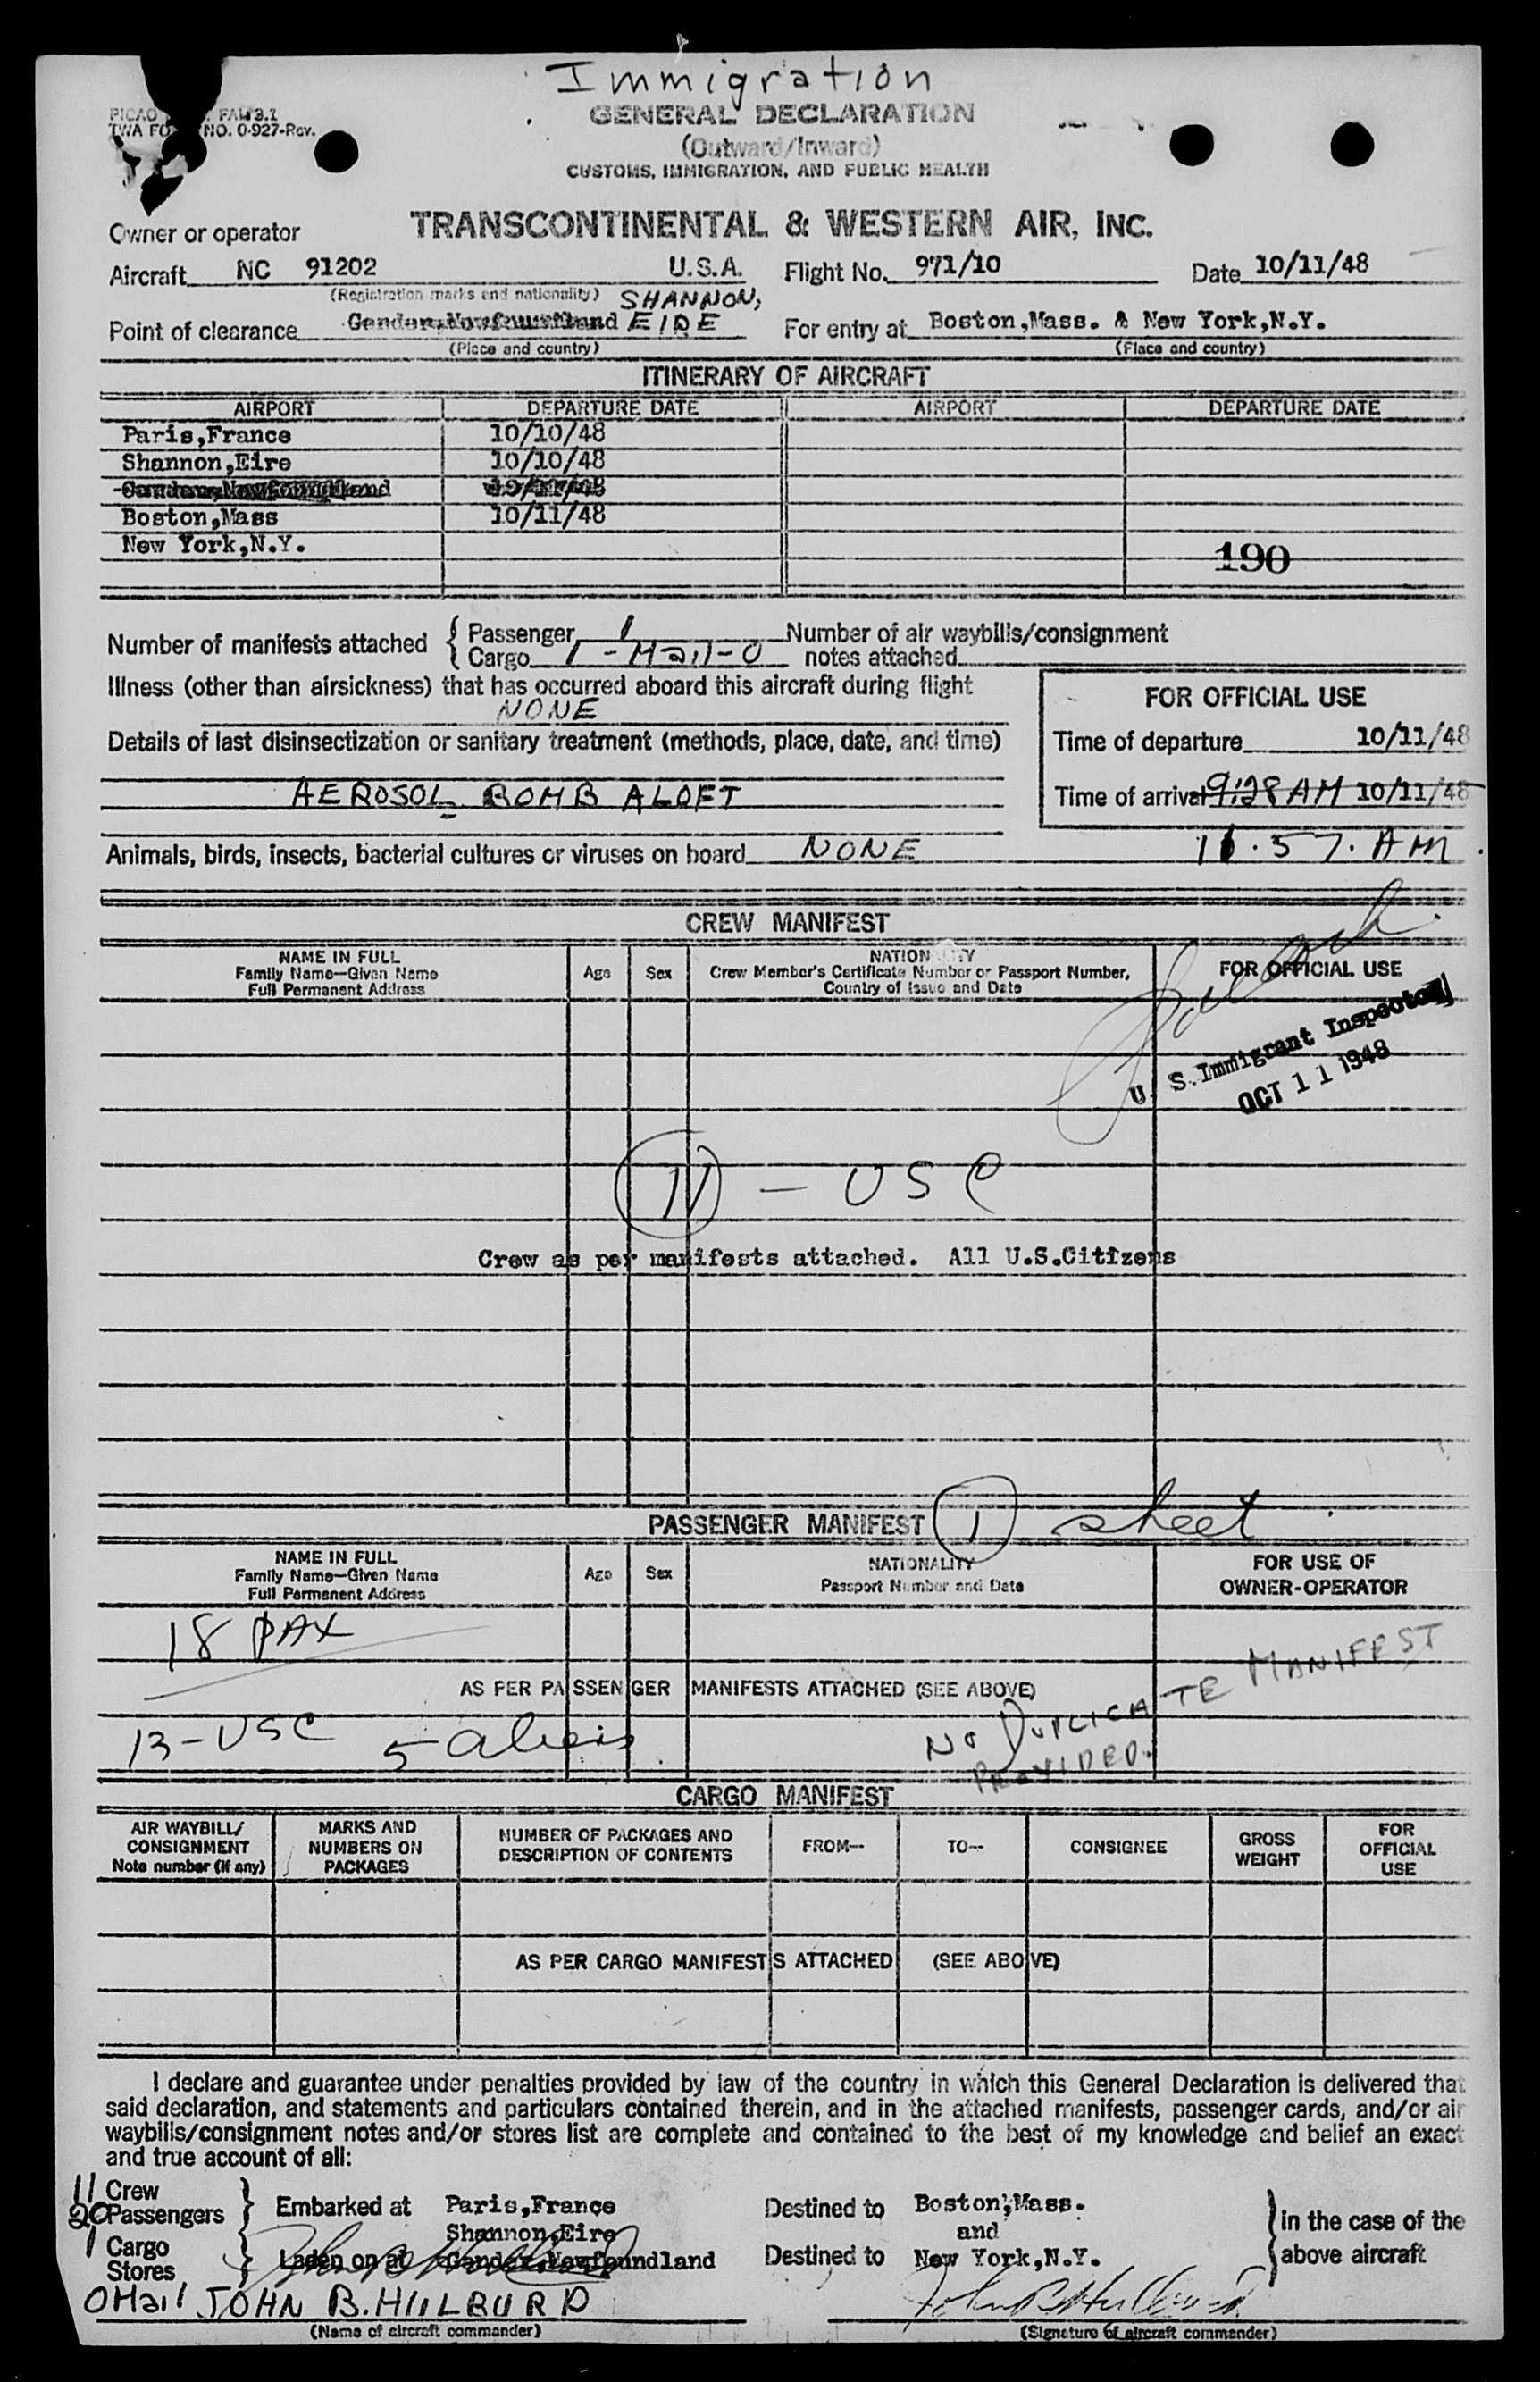 Immigration
PICAO FAL 3.1
TWA FO NO. 0-927-Rev.
GENERAL DECLARATION
(Outward/Inward)
CUSTOMS, IMMIGRATION, AND PUBLIC HEALTH
Owner or operator TRANSCONTINENTAL & WESTERN AIR, INC.
Aircraft NC 91202 U.S.A. Flight No. 971/10 Date 10/11/48
(Registration marks and nationality) SHANNON,
Point of clearance Gander, Newfoundland EIRE For entry at Boston, Mass. & New York, N.Y.
(Place and country) (Place and country)
ITINERARY OF AIRCRAFT
AIRPORT DEPARTURE DATE AIRPORT DEPARTURE DATE
Paris, France 10/10/48
Shannon, Eire 10/10/48
Gander, Newfoundland 10/11/48
Boston, Mass 10/11/48
New York, N.Y.
190
Number of manifests attached { Passenger 1 Number of air waybills/consignment
Cargo 1 - Mail - 0 notes attached
Illness (other than airsickness) that has occurred aboard this aircraft during flight
NONE
FOR OFFICIAL USE
Details of last disinsectization or sanitary treatment (methods, place, date, and time)
Time of departure 10/11/48
AEROSOL BOMB ALOFT
Time of arrival 9:28 AM 10/11/48
Animals, birds, insects, bacterial cultures or viruses on board NONE 11.57. AM
CREW MANIFEST
NAME IN FULL
Family Name—Given Name
Full Permanent Address
Age Sex
NATION Y
Crew Member's Certificate Number or Passport Number,
Country of Issue and Date
FOR OFFICIAL USE
U. S. Immigrant Inspector
OCT 11 1948
11 - USC
Crew as per manifests attached. All U.S.Citizens
PASSENGER MANIFEST 1 sheet
NAME IN FULL
Family Name—Given Name
Full Permanent Address
Age Sex
NATIONALITY
Passport Number and Date
FOR USE OF
OWNER-OPERATOR
18 PAX
AS PER PASSENGER MANIFESTS ATTACHED (SEE ABOVE)
13-USC 5 aliens
NO DUPLICATE MANIFEST
PROVIDED.
CARGO MANIFEST
AIR WAYBILL/
CONSIGNMENT
Note number (if any)
MARKS AND
NUMBERS ON
PACKAGES
NUMBER OF PACKAGES AND
DESCRIPTION OF CONTENTS
FROM— TO— CONSIGNEE
GROSS
WEIGHT
FOR
OFFICIAL
USE
AS PER CARGO MANIFESTS ATTACHED (SEE ABOVE)
I declare and guarantee under penalties provided by law of the country in which this General Declaration is delivered that
said declaration, and statements and particulars contained therein, and in the attached manifests, passenger cards, and/or air
waybills/consignment notes and/or stores list are complete and contained to the best of my knowledge and belief an exact
and true account of all:
11 Crew
20 Passengers } Embarked at Paris, France Destined to Boston, Mass.
Shannon, Eire and
1 Cargo
Stores } Laden on at Gander, Newfoundland Destined to New York, N.Y.
} in the case of the
above aircraft
0 Mail JOHN B. HILLBURD John B. Hillburd
(Name of aircraft commander) (Signature of aircraft commander)